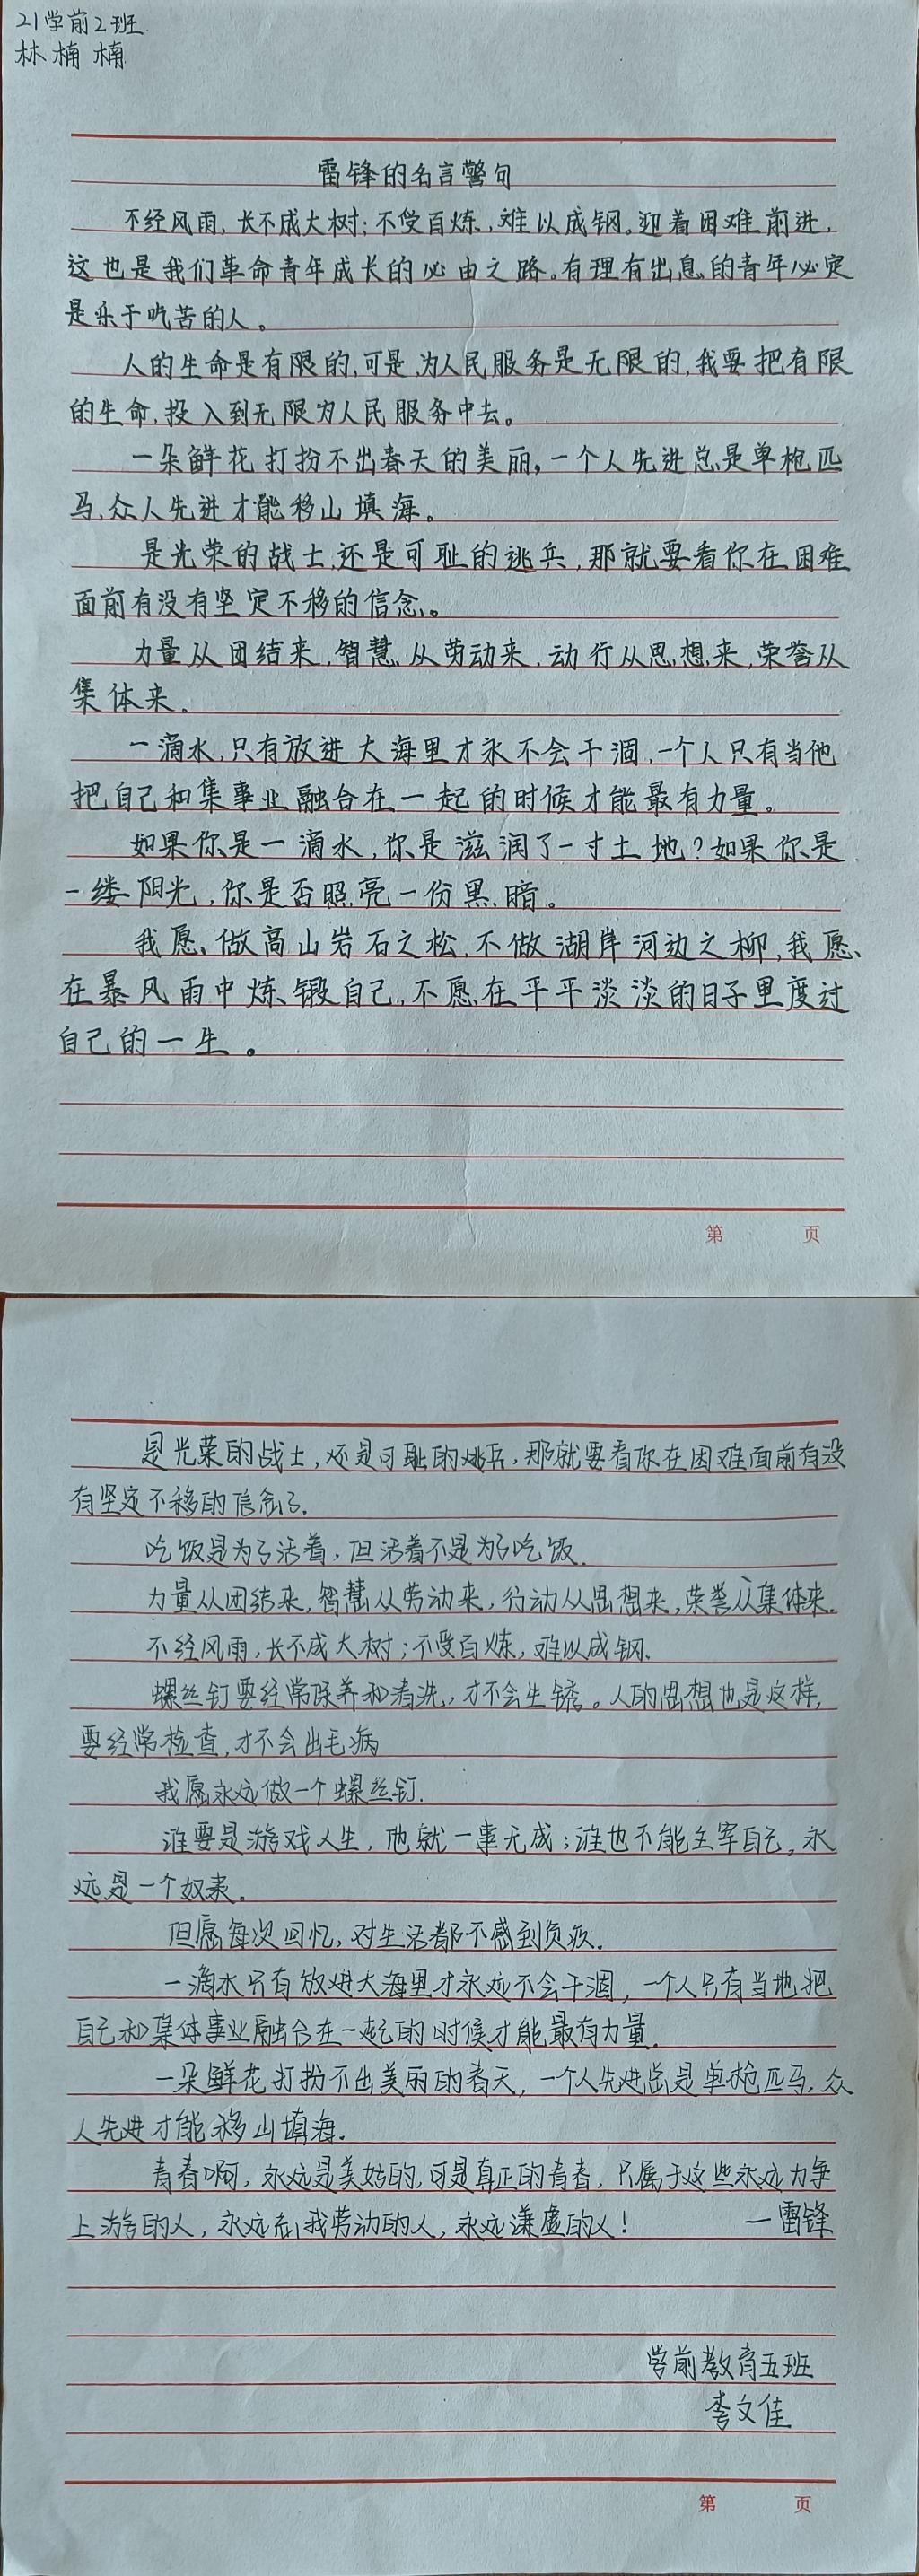 21学前2班
林楠楠
雷锋的名言警句
不经风雨,长不成大树;不受百炼,难以成钢。迎着困难前进,
这也是我们革命青年成长的必由之路。有理有出息的青年必定
是乐于吃苦的人。
人的生命是有限的,可是,为人民服务是无限的,我要把有限
的生命,投入到无限为人民服务中去。
一朵鲜花打扮不出春天的美丽,一个人先进总是单枪匹
马,众人先进才能移山填海。
是光荣的战士,还是可耻的逃兵,那就要看你在困难
面前有没有坚定不移的信念。
力量从团结来,智慧从劳动来,动行从思想来,荣誉从
集体来。
一滴水,只有放进大海里才永不会干涸,一个人只有当他
把自己和集事业融合在一起的时候才能最有力量。
如果你是一滴水,你是滋润了一寸土地?如果你是
一缕阳光,你是否照亮一份黑暗。
我愿做高山岩石之松,不做湖岸河边之柳,我愿
在暴风雨中炼锻自己,不愿在平平淡淡的日子里度过
自己的一生。
第 页
是光荣的战士,还是可耻的逃兵,那就要看你在困难面前有没
有坚定不移的信念了.
吃饭是为了活着,但活着不是为了吃饭.
力量从团结来,智慧从劳动来,行动从思想来,荣誉从集体来.
不经风雨,长不成大树;不受百炼,难以成钢.
螺丝钉要经常保养和清洗,才不会生锈。人的思想也是这样,
要经常检查,才不会出毛病
我愿永远做一个螺丝钉.
谁要是游戏人生,他就一事无成;谁也不能主宰自己,永
远是一个奴隶。
但愿每次回忆,对生活都不感到负疚.
一滴水只有放进大海里才永远不会干涸,一个人只有当他把
自己和集体事业融合在一起的时候才能最有力量.
一朵鲜花打扮不出美丽的春天,一个人先进总是单枪匹马,众
人先进才能移山填海.
青春啊,永远是美好的,可是真正的青春,只属于这些永远力争
上游的人,永远忘我劳动的人,永远谦虚的人! 一雷锋
学前教育五班
李文佳
第 页